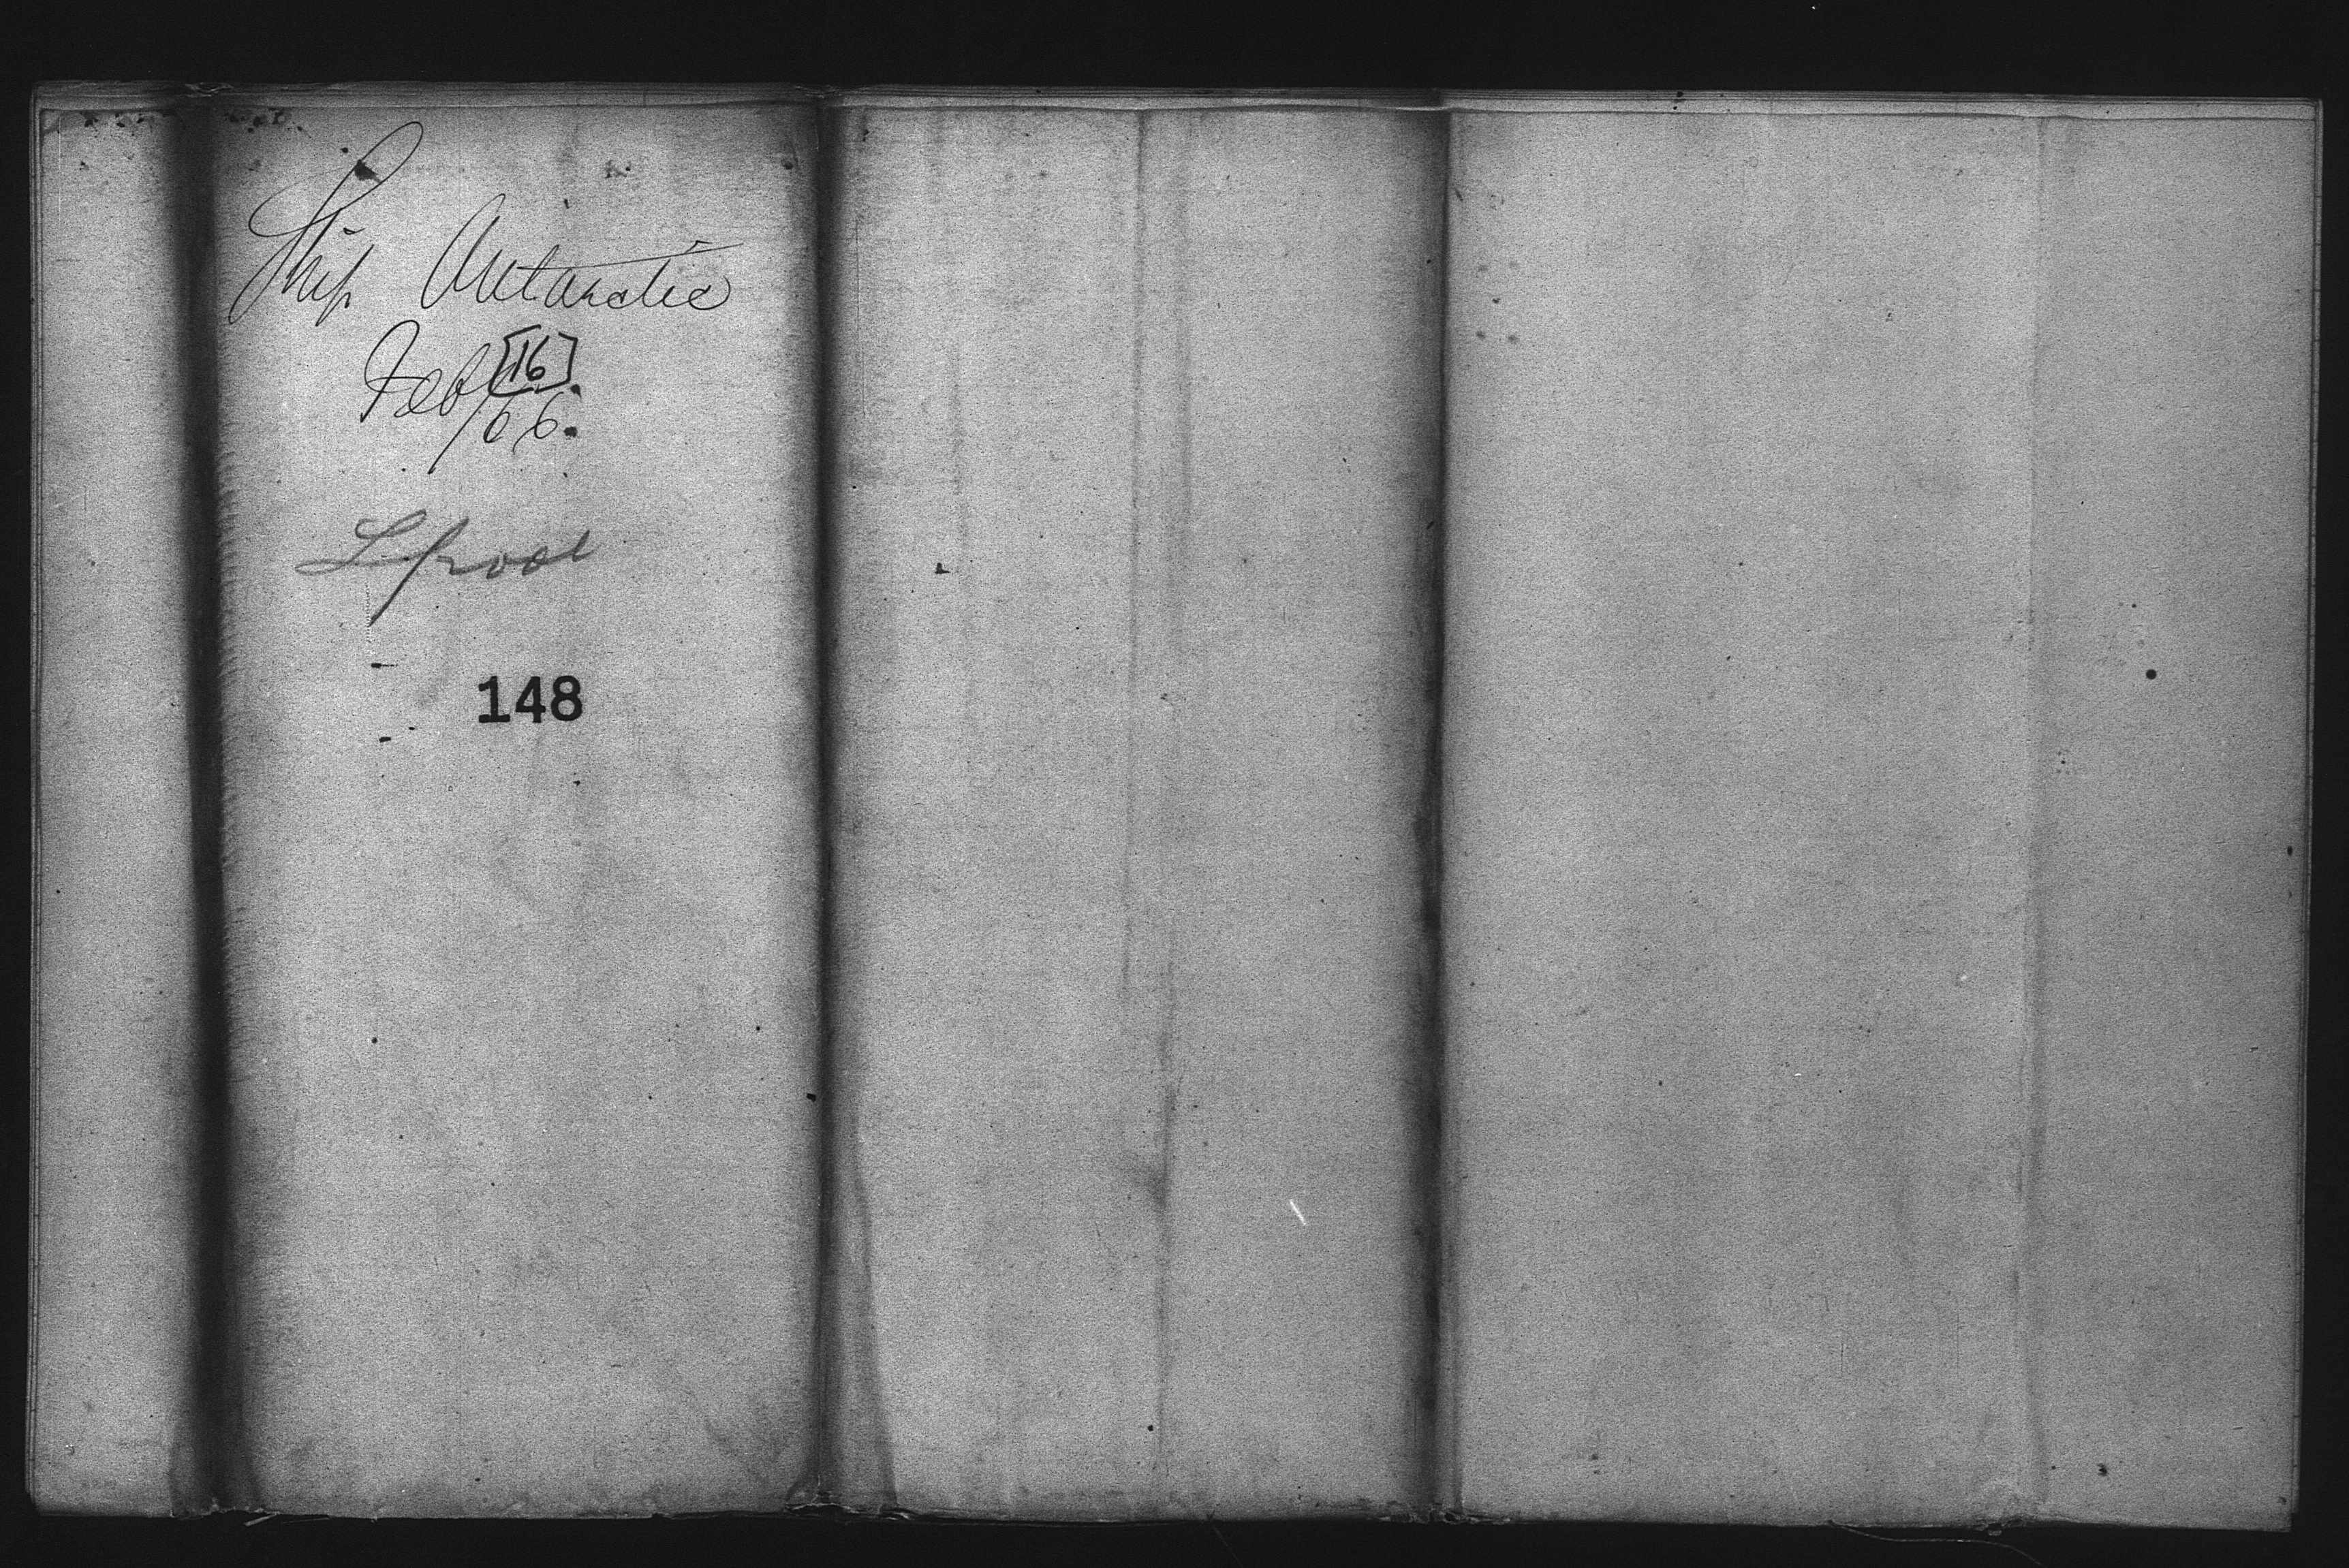 Ship Antarctic
Feb [16]
/66.
Lpool
148